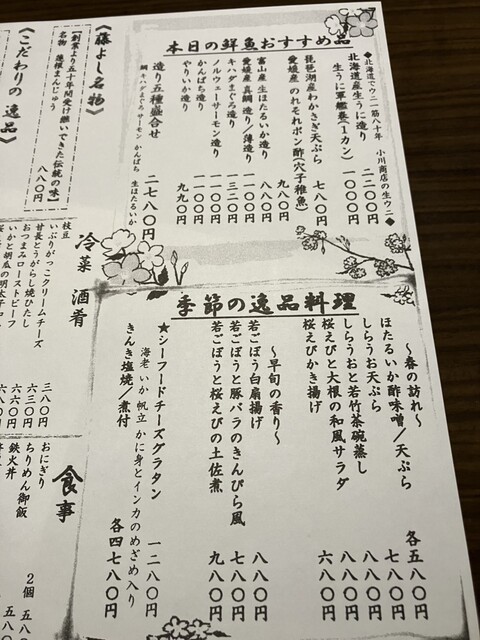 本日の鮮魚おすすめ品
◆北海道でウニ一筋八十年 小川商店の生ウニ◆
北海道産生うに造り 二二〇〇円
生うに軍艦巻(1カン) 一〇〇〇円
琵琶湖産わかさぎ天ぷら 七八〇円
愛媛産のれそれポン酢(穴子稚魚) 九八〇円
富山産生ほたるいか造り 八八〇円
愛媛産真鯛造り/薄造り 一一〇〇円
キハダまぐろ造り 一三二〇円
ノルウェーサーモン造り 一一〇〇円
かんぱち造り 一一〇〇円
やりいか造り 九九〇円
造り五種盛合せ 二七八〇円
鯛 キハダまぐろ サーモン かんぱち 生ほたるいか
季節の逸品料理
〜春の訪れ〜
ほたるいか酢味噌/天ぷら 各五八〇円
しらうお天ぷら 七八〇円
しらうおと若竹茶碗蒸し 八八〇円
桜えびと大根の和風サラダ 八八〇円
桜えびかき揚げ 六八〇円
〜早旬の香り〜
若ごぼう白扇揚げ 八八〇円
若ごぼうと豚バラのきんぴら風 七八〇円
若ごぼうと桜えびの土佐煮 九八〇円
★シーフードチーズグラタン 一二八〇円
海老 いか 帆立 かに身とインカのめざめ入り
きんき塩焼/煮付 各四七八〇円
《藤よし名物》
【創業より五十年間受け継いできた伝統の味】
名物 蓮根まんじゅう 八八〇円
《こだわりの逸品》
冷菜 酒肴
枝豆 三八〇円
いぶりがっこクリームチーズ
甘長とうがらし焼びたし 六三〇円
おつまみローストビーフ 六六〇円
いかと胡瓜の明太子
食事
おにぎり 2個
ちりめん御飯
鉄火丼